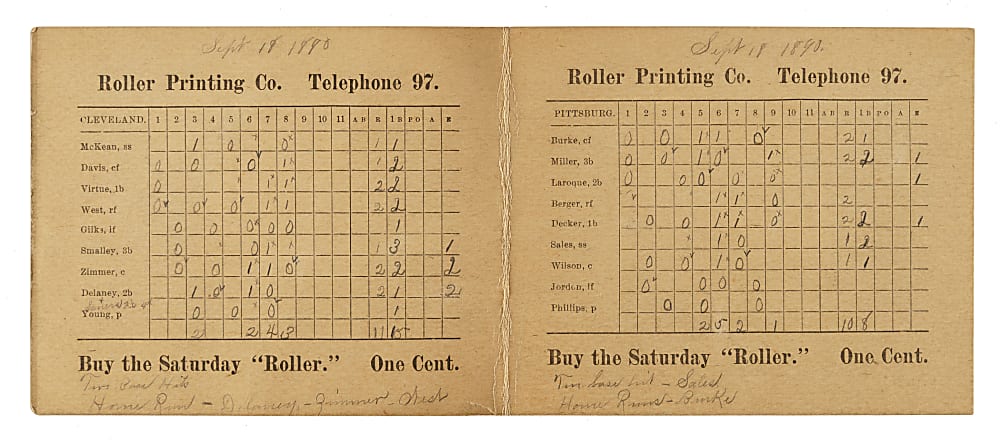 Sept 18 1890
Roller Printing Co. Telephone 97.
CLEVELAND. 1 2 3 4 5 6 7 8 9 10 11 A B R 1 B P O A E
McKean, ss 1 0 0 1 1
Davis, cf 0 0 0 1 2
Virtue, 1b 0 1 1 2 2
West, rf 0 0 0 1 1 2 2
Gilks, lf 0 0 0 0 0 1
Smalley, 3b 0 0 1 1 3 1
Zimmer, c 0 0 1 1 0 2 2 2
Delaney, 2b 1 0 1 0 2 1 2
Young, p 0 0 0 1
2 2 4 3 11 15
Buy the Saturday “Roller.” One Cent.
Two Base Hits
Home Runs – Delaney – Zimmer – West
Sept 18 1890.
Roller Printing Co. Telephone 97.
PITTSBURG. 1 2 3 4 5 6 7 8 9 10 11 A B R 1 B P O A E
Burke, cf 0 0 1 1 0 2 1
Miller, 3b 0 0 1 0 1 2 2 1
Laroque, 2b 0 0 0 0 0 1
Berger, rf 1 1 0 2
Decker, 1b 0 0 1 1 0 2 2 1
Sales, ss 1 0 1 2
Wilson, c 0 0 1 0 1 1
Jordon, lf 0 0 0 0
Phillips, p 0 0 0
2 5 2 1 10 8
Buy the Saturday “Roller.” One Cent.
Two base hit – Sales
Home Runs – Burke